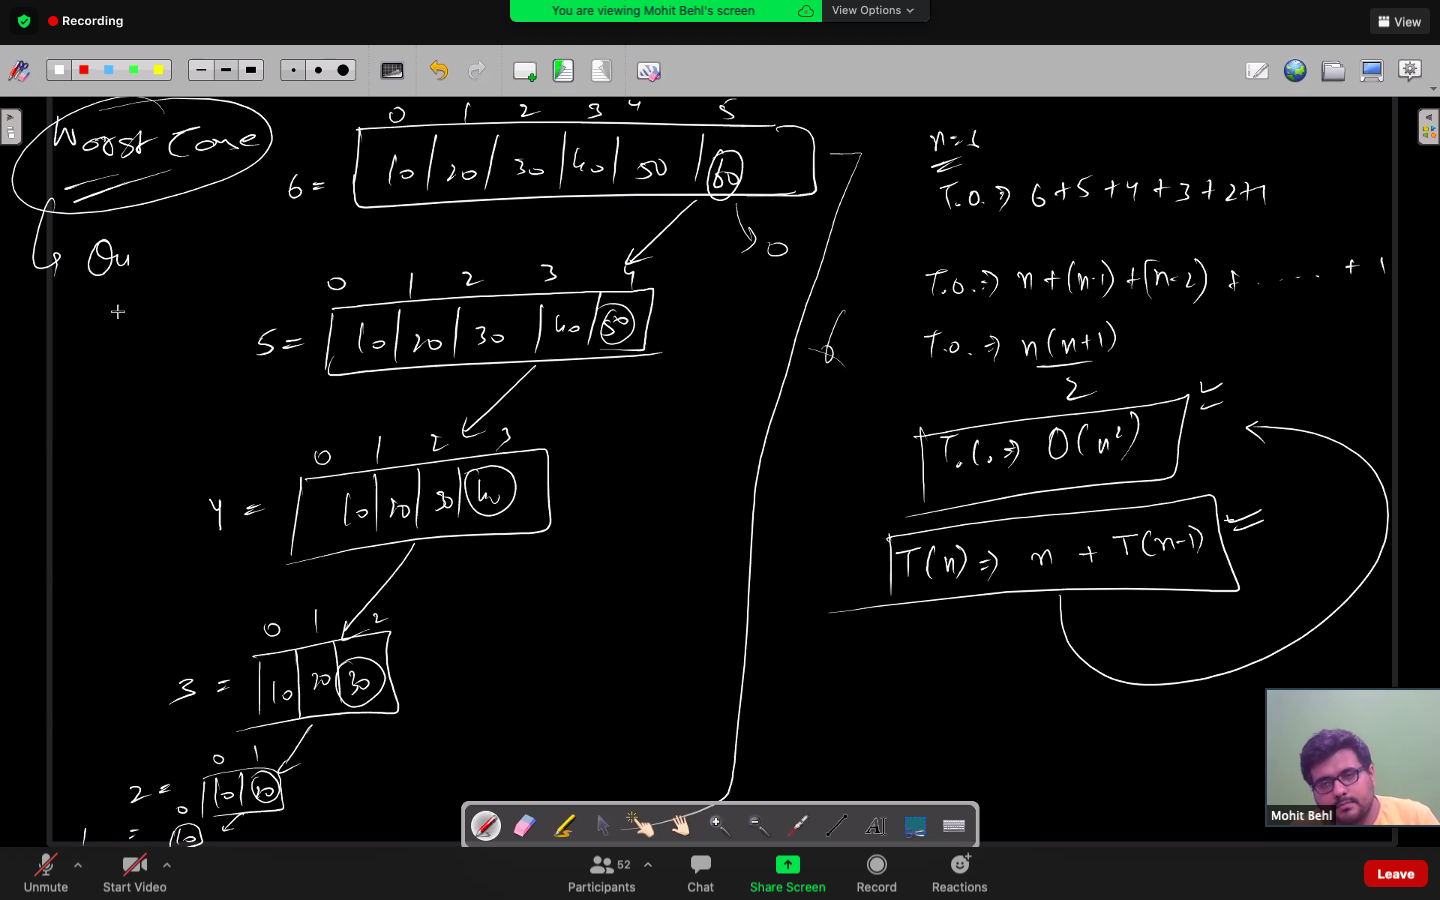 Recording
You are viewing Mohit Behl's screen
View Options
View
Worst Case
0 1 2 3 4 5
6 = 10 20 30 40 50 60
0
0 1 2 3 4
5 = 10 20 30 40 50
0 1 2 3
4 = 10 20 30 40
0 1 2
3 = 10 20 30
0 1
2 = 10 20
0
1 = 10
T.O. ⇒ 6 + 5 + 4 + 3 + 2 + 1
T.O. ⇒ n + (n-1) + (n-2) + ..... + 1
T.O. ⇒ n(n+1)
2
T.C. ⇒ O(n²)
T(n) ⇒ n + T(n-1)
Mohit Behl
Unmute
Start Video
52
Participants
Chat
Share Screen
Record
Reactions
Leave